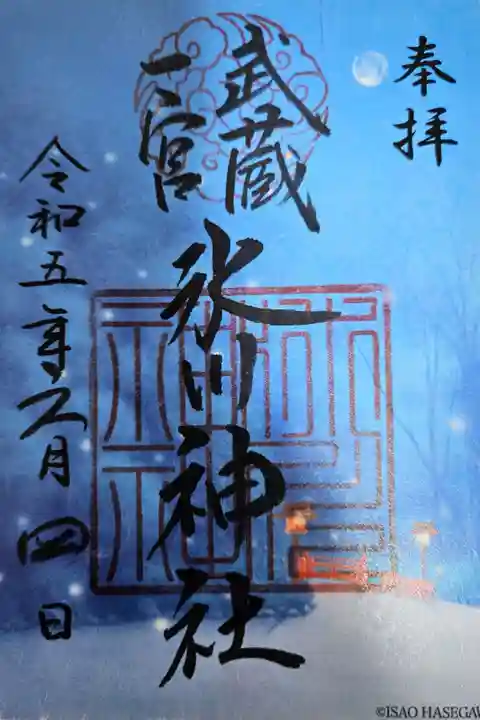 奉拝
武蔵
一宮
氷川神社
令和五年六月四日
©ISAO HASEGAW